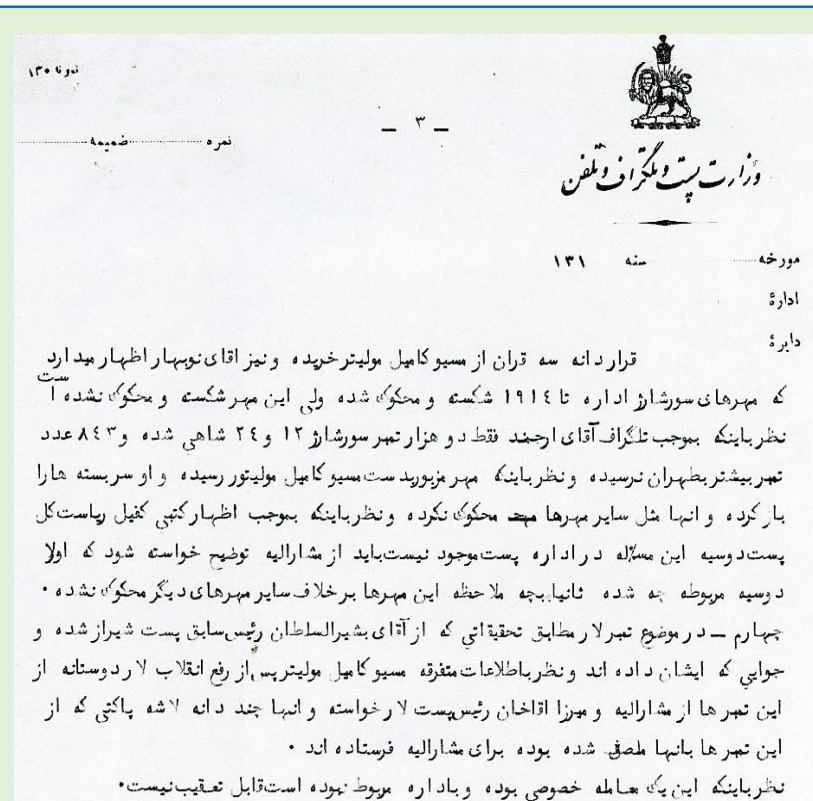 نمره ........ ضمیمه ........
— ۳ —
وزارت پست و تلگراف و تلفن
مورخه ........ سنه ۱۳۱
ادارهٔ
دایرهٔ
قرار دانه سه قران از مسیو کامیل مولیتر خریده و نیز اقای نوبهار اظهار میدارد
که مهرهای سورشارژ اداره تا ۱۹۱٤ شکسته و محکوک شده ولی این مهر شکسته و محکوک نشده است
نظر باینکه بموجب تلگراف آقای ارجمند فقط دو هزار تمبر سورشارژ ۱۲ و ۲٤ شاهی شده و ۸٤۳ عدد
تمبر بیشتر بطهران نرسیده و نظر باینکه مهر مزبور بدست مسیو کامیل مولیتور رسیده و او سر بسته هارا
باز کرده و انها مثل سایر مهرها محکوک نکرده و نظر باینکه بموجب اظهار کتبی کفیل ریاست کل
پست دوسیه این مسئله در اداره پست موجود نیست باید از مشارالیه توضیح خواسته شود که اولا
دوسیه مربوطه چه شده ثانیا بچه ملاحظه این مهرها برخلاف سایر مهرهای دیگر محکوک نشده ۰
چهارم — در موضوع تمبر لار مطابق تحقیقاتی که از آقای بشیرالسلطان رئیس سابق پست شیراز شده و
جوابی که ایشان داده اند و نظر باطلاعات متفرقه مسیو کامیل مولیتر پس از رفع انقلاب لار دوستانه از
این تمبر ها از مشارالیه و میرزا اقاخان رئیس پست لار خواسته و انها چند دانه لاشه پاکتی که از
این تمبر ها بانها ملصق شده بوده برای مشارالیه فرستاده اند ۰
نظر باینکه این یک معامله خصوصی بوده و باداره مربوط نبوده است قابل تعقیب نیست۰